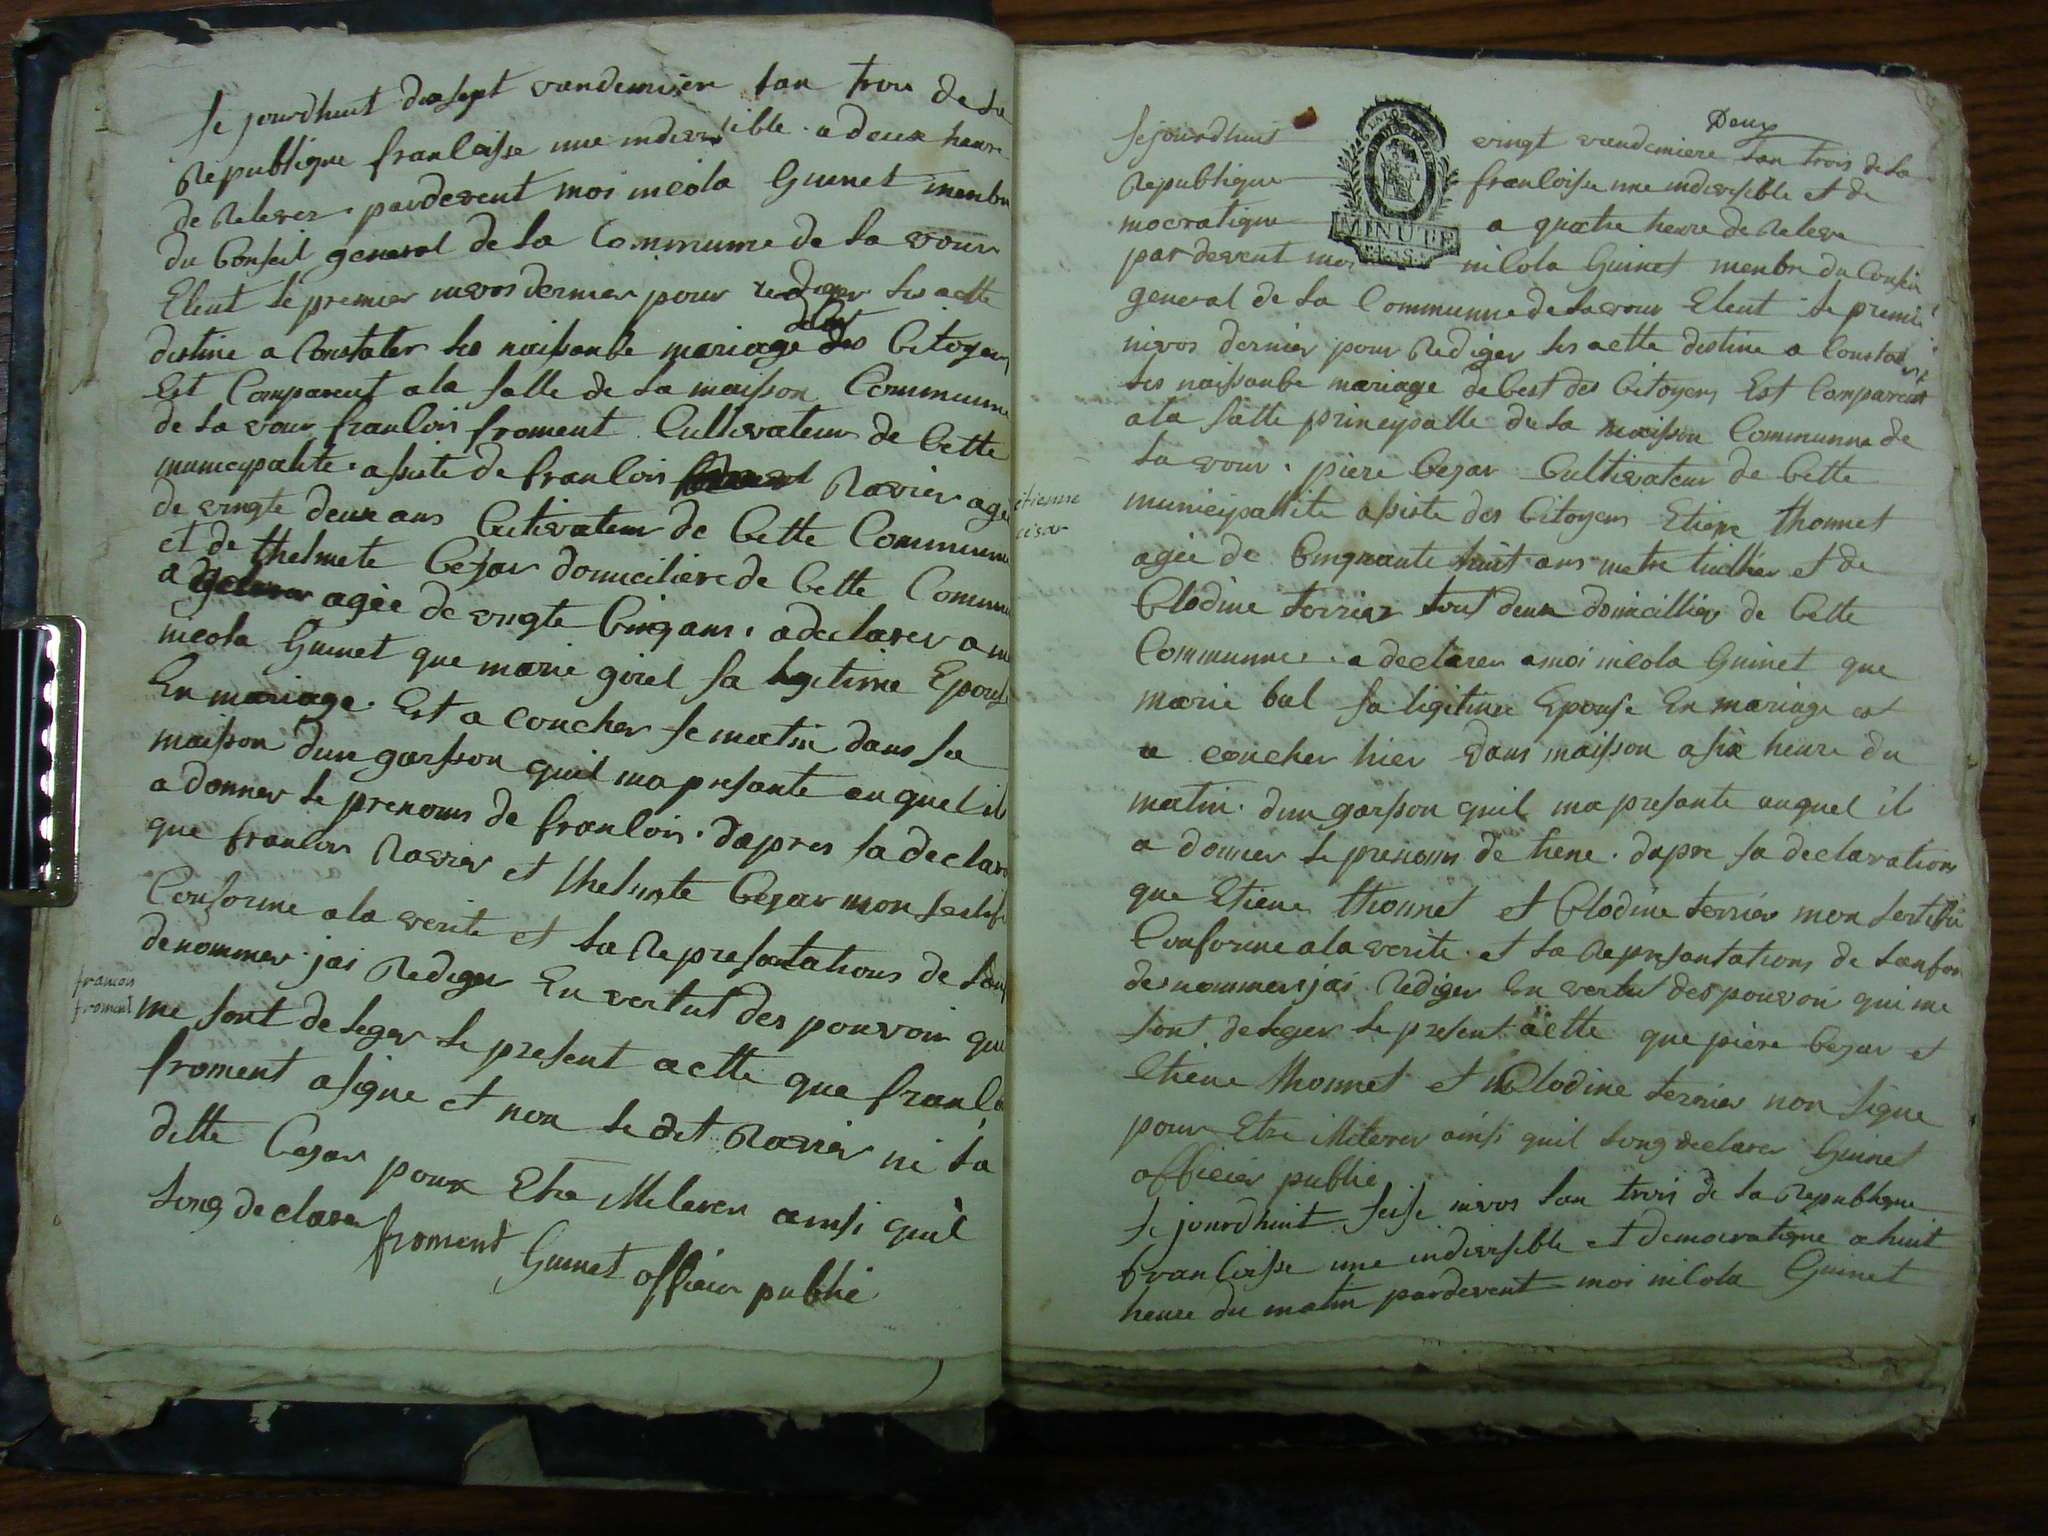 se jourdhuit dixsept vandemier lan trois de la
Republique franloisse une indivisible a deux heure
de Relever pardevent moi nicola Guinet menbre
du Conseil general de la Commune de la vour
Eleut le premier nivos dernier pour rediger les actte
destine a Constater les naissanbe mariage des Citoyens
Est Comparent a la salle de la maisson Commune
de la vour franlois froment Cultivateur de Cette
municypalite asiste de franlois Ravier age
de vingte deux ans Cultivateur de Cette Commune
et de thelmete Cezar domiciliere de Cette Commune
a agée de vingte Cinq ans, a declarer a moi
nicola Guinet que marie girel sa legitime Epouse
En mariage. Est a coucher se matin dans sa
maisson dun garsson quil ma presante auquel il
a donner le prenoms de franlois. dapres sa declara
que franlois Ravier et thelmete Cezar mon sertifi
Conforme a la verite et la Representations de
denommer jai Rediger En vertut des pouvoir qui
me sont deleger le present actte que franlois
froment a signe et non le dit Ravier ni la
ditte Cezar pour Etre Illeterer ainsi quil
long declarer
froment Guinet officier public
francois
froment
Deux
se jourdhuit vingt vandemiere lan trois de la
Republique franloise une indivisible et de
mocratique a quatre heure de Releve
par devent moi nicola Guinet menbre du Conseil
general de la Commune de lavour Eleut le premier
nivos dernier pour Rediger les actte destine a Constater
les naissanbe mariage deCest des Citoyens Est Comparent
a la salle prineypalle de la maisson Commune de
la vour. piere Cezar Cultivateur de Cette
municipallite asiste des Citoyens Etiene thonnet
agée de Cinquante huit ans metre tuillier et de
Clodine terrier tous deux domicillier de Cette
Commune. a declarer a moi nicola Guinet que
marie bal sa ligitime Epouse En mariage est
a coucher hier dans maisson a six heure du
matin. dun garsson quil ma presante auquel il
a donner le prenoms de tiene. dapre sa declarations
que Etiene thonnet et Clodine terrier mon sertifie
Conforme a la verite et la Represantations de lanfan
denommer jai Rediger En vertu des pouvoir qui me
sont deleger le present actte que piere Cezar et
Etiene thonnet et Clodine terrier non signe
pour Etre Illeterer ainsi quil long declarer Guinet
officier public
étienne
césar
se jourdhuit seise nivos lan trois de la Republique
franloisse une indivisible et democratique a huit
heure du matin pardevent moi nicola Guinet
MINUTE